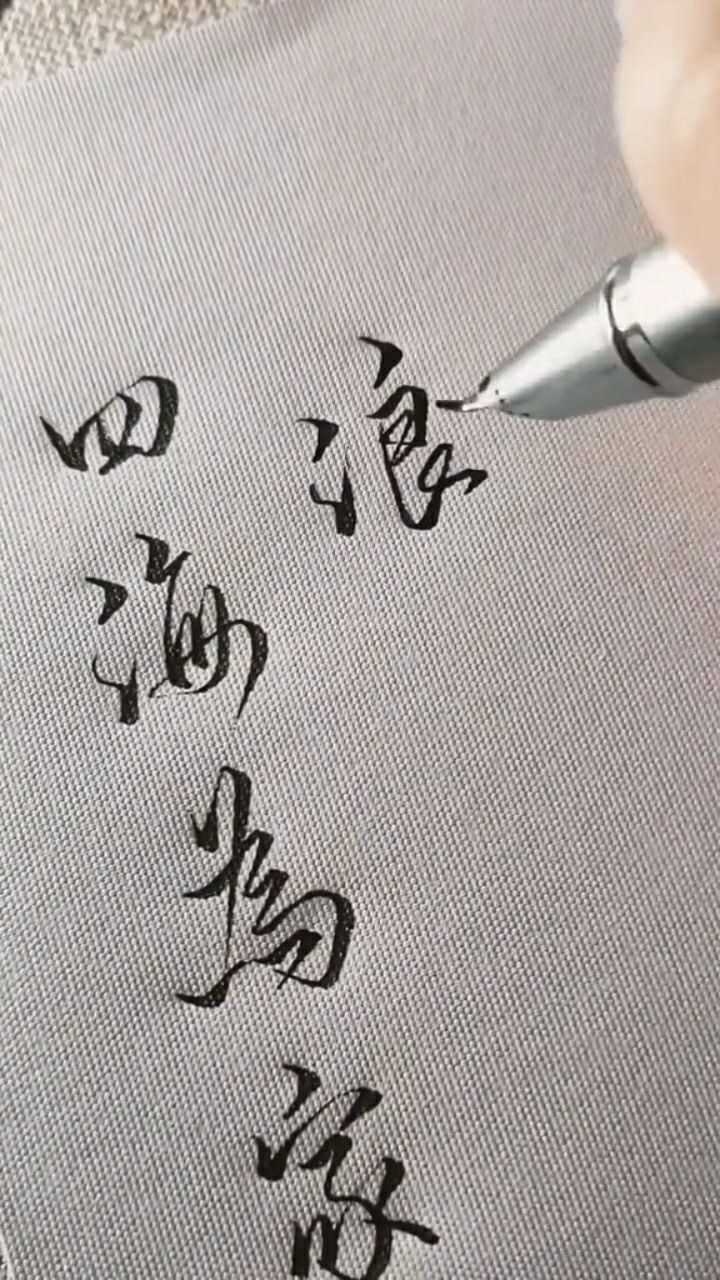 浪
四海為家